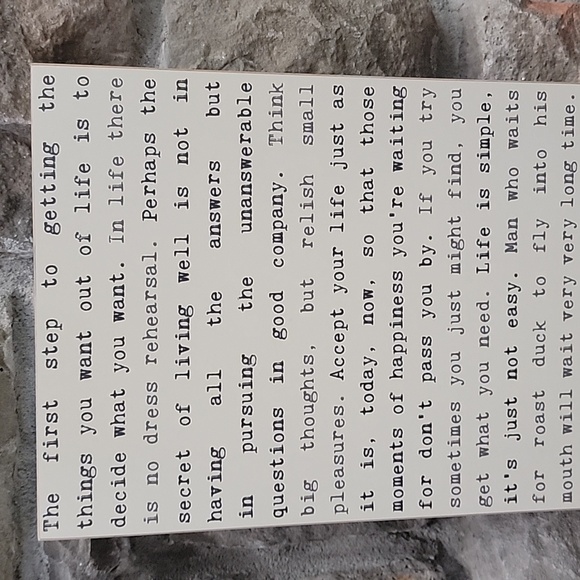 The first step to getting the
things you want out of life is to
decide what you want. In life there
is no dress rehearsal. Perhaps the
secret of living well is not in
having all the answers but
in pursuing the unanswerable
questions in good company. Think
big thoughts, but relish small
pleasures. Accept your life just as
it is, today, now, so that those
moments of happiness you're waiting
for don't pass you by. If you try
sometimes you just might find, you
get what you need. Life is simple,
it's just not easy. Man who waits
for roast duck to fly into his
mouth will wait very very long time.